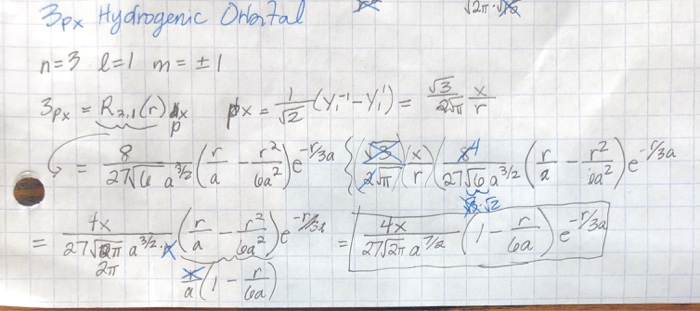 3px Hydrogenic Orbital
√2π · √12
n=3 l=1 m=±1
3px = R3,1(r) px px = 1/√2 (Y₁⁻¹ − Y₁¹) = √3/2√π x/r
= 8/27√6 a^3/2 (r/a − r²/6a²) e^-r/3a { √3/2√π (x/r) ( 84/27√6 a^3/2 (r/a − r²/6a²) e^-r/3a
√3·√2
= 4x/27√2π a^3/2 · r (r/a − r²/6a²) e^-r/3a = 4x/27√2π a^7/2 (1 − r/6a) e^-r/3a
2π r/a (1 − r/6a)